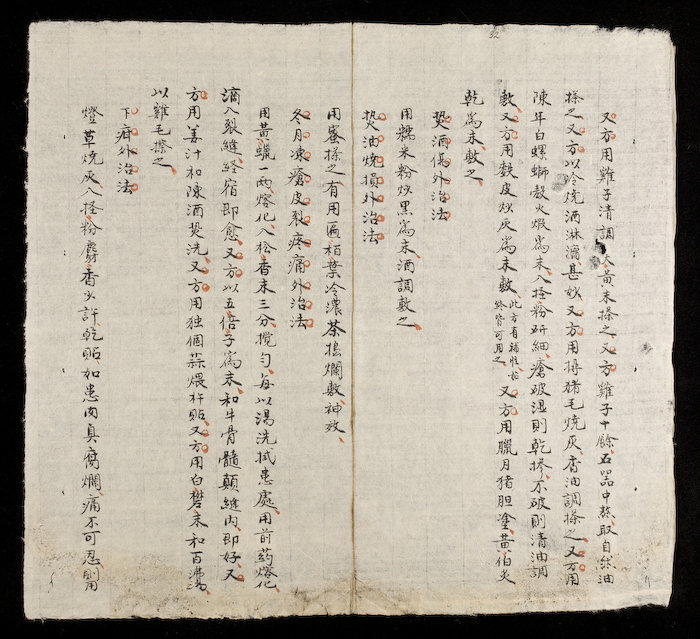 又方用雞子清調大黃末搽之又方雞子十餘五器中熬取自然油
搽之又方以冷燒酒淋灕甚妙又方用挦猪毛燒灰香油調搽之又方用
陳年白螺螄殼火煅爲末入輕粉研細瘡破湿則乾摻不破則清油調
敷又方用麩皮炒灰爲末敷此方有補性始終皆可用之又方用臘月猪胆塗黄伯炙
乾爲末敷之
熨酒傷外治法
用糯米粉炒黑爲末酒調敷之
熨油燒損外治法
用蜜搽之有用匾栢葉冷濃茶搗爛敷神效
冬月凍瘡皮裂疼痛外治法
用黄蠟一两熔化入松香末三分攪匀每以湯洗拭患處用前药熔化
滴入裂縫経宿即愈又方以五倍子爲末和牛骨髓顛縫内即好又
方用姜汁和陳酒熨洗又方用独個蒜煨杵貼又方用白礬末和百沸湯
以雞毛搽之
下疳外治法
燈草燒灰入輕粉麝香少許乾貼如患肉臭腐爛痛不可忍則用